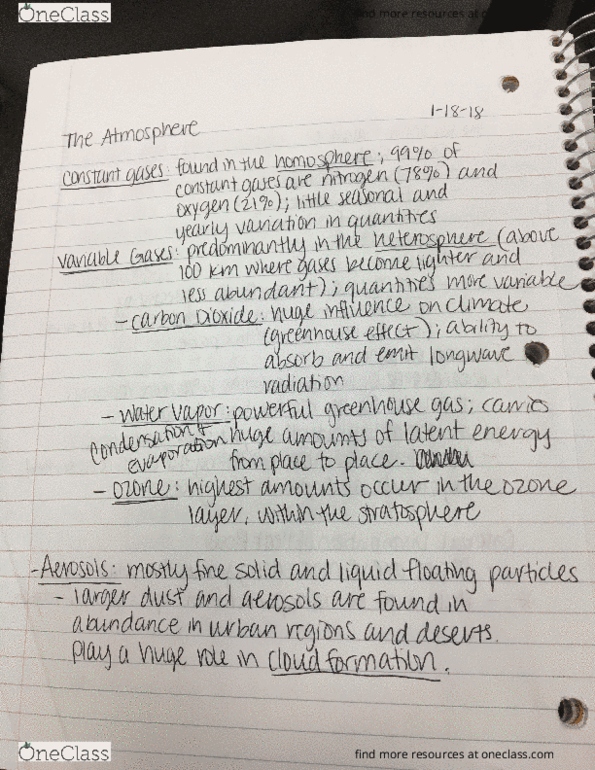 OneClass
find more resources at o
1-18-18
The Atmosphere
constant gases: found in the homosphere; 99% of
constant gases are nitrogen (78%) and
oxygen (21%); little seasonal and
yearly variation in quantities
Variable Gases: predominantly in the heterosphere (above
100 km where gases become lighter and
less abundant); quantities more variable
- Carbon Dioxide: huge influence on climate
(greenhouse effect); ability to
absorb and emit longwave
radiation
- Water vapor: powerful greenhouse gas; carries
condensation & evaporation huge amounts of latent energy
from place to place.
- Ozone: highest amounts occur in the ozone
layer, within the stratosphere
- Aerosols: mostly fine solid and liquid floating particles
- larger dust and aerosols are found in
abundance in urban regions and deserts.
play a huge role in cloud formation.
OneClass
find more resources at oneclass.com